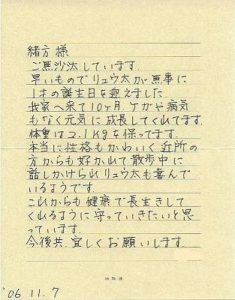 緒方様
ご無沙汰しています。
早いものでリュウ太が無事に
1才の誕生日を迎えました。
我家へ来て10ヶ月 ケガや病気
もなく元気に成長してくれてます。
体重は2.1kgを保ってます。
本当に性格もかわいく近所の
方からも好かれて散歩中に
話しかけられリュウ太も喜んで
いるようです。
これからも健康で長生きして
くれるように守っていきたいと思
っています。
今後共、宜しくお願いします。
'06.11.7